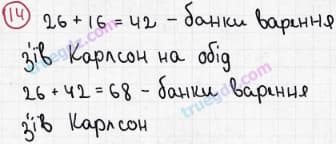 14 26 + 16 = 42 - банки варення
з'їв Карлсон на обід
26 + 42 = 68 - банки варення
з'їв Карлсон